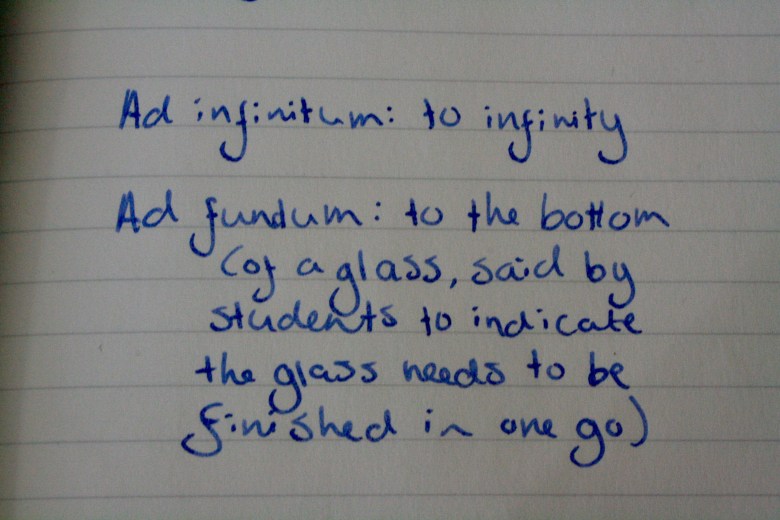 Ad infinitum: to infinity
Ad fundum: to the bottom
(of a glass, said by
students to indicate
the glass needs to be
finished in one go)